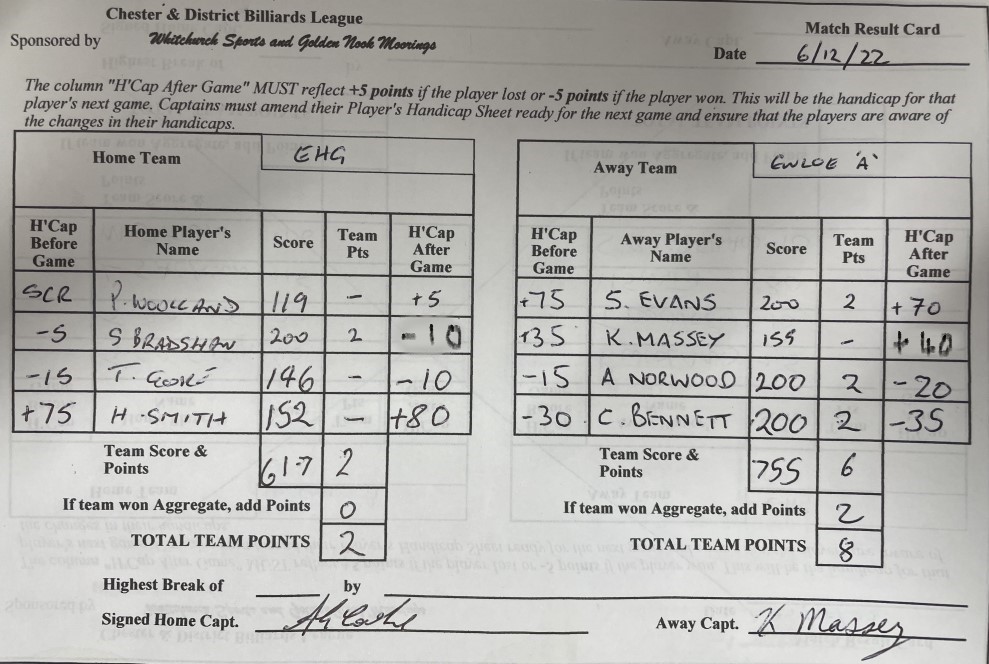 Chester & District Billiards League
Match Result Card
Sponsored by Whitchurch Sports and Golden Nook Moorings
Date 6/12/22
The column "H'Cap After Game" MUST reflect +5 points if the player lost or -5 points if the player won. This will be the handicap for that
player's next game. Captains must amend their Player's Handicap Sheet ready for the next game and ensure that the players are aware of
the changes in their handicaps.
Home Team EHG
H'Cap Before Game Home Player's Name Score Team Pts H'Cap After Game
SCR P. WOOLLAND 119 - +5
-5 S BRADSHAW 200 2 -10
-15 T. GORE 146 - -10
+75 H. SMITH 152 - +80
Team Score & Points 617 2
If team won Aggregate, add Points 0
TOTAL TEAM POINTS 2
Away Team EWLOE 'A'
H'Cap Before Game Away Player's Name Score Team Pts H'Cap After Game
+75 S. EVANS 200 2 +70
+35 K. MASSEY 155 - +40
-15 A NORWOOD 200 2 -20
-30 C. BENNETT 200 2 -35
Team Score & Points 755 6
If team won Aggregate, add Points 2
TOTAL TEAM POINTS 8
Highest Break of by
Signed Home Capt.
Away Capt. K Massey